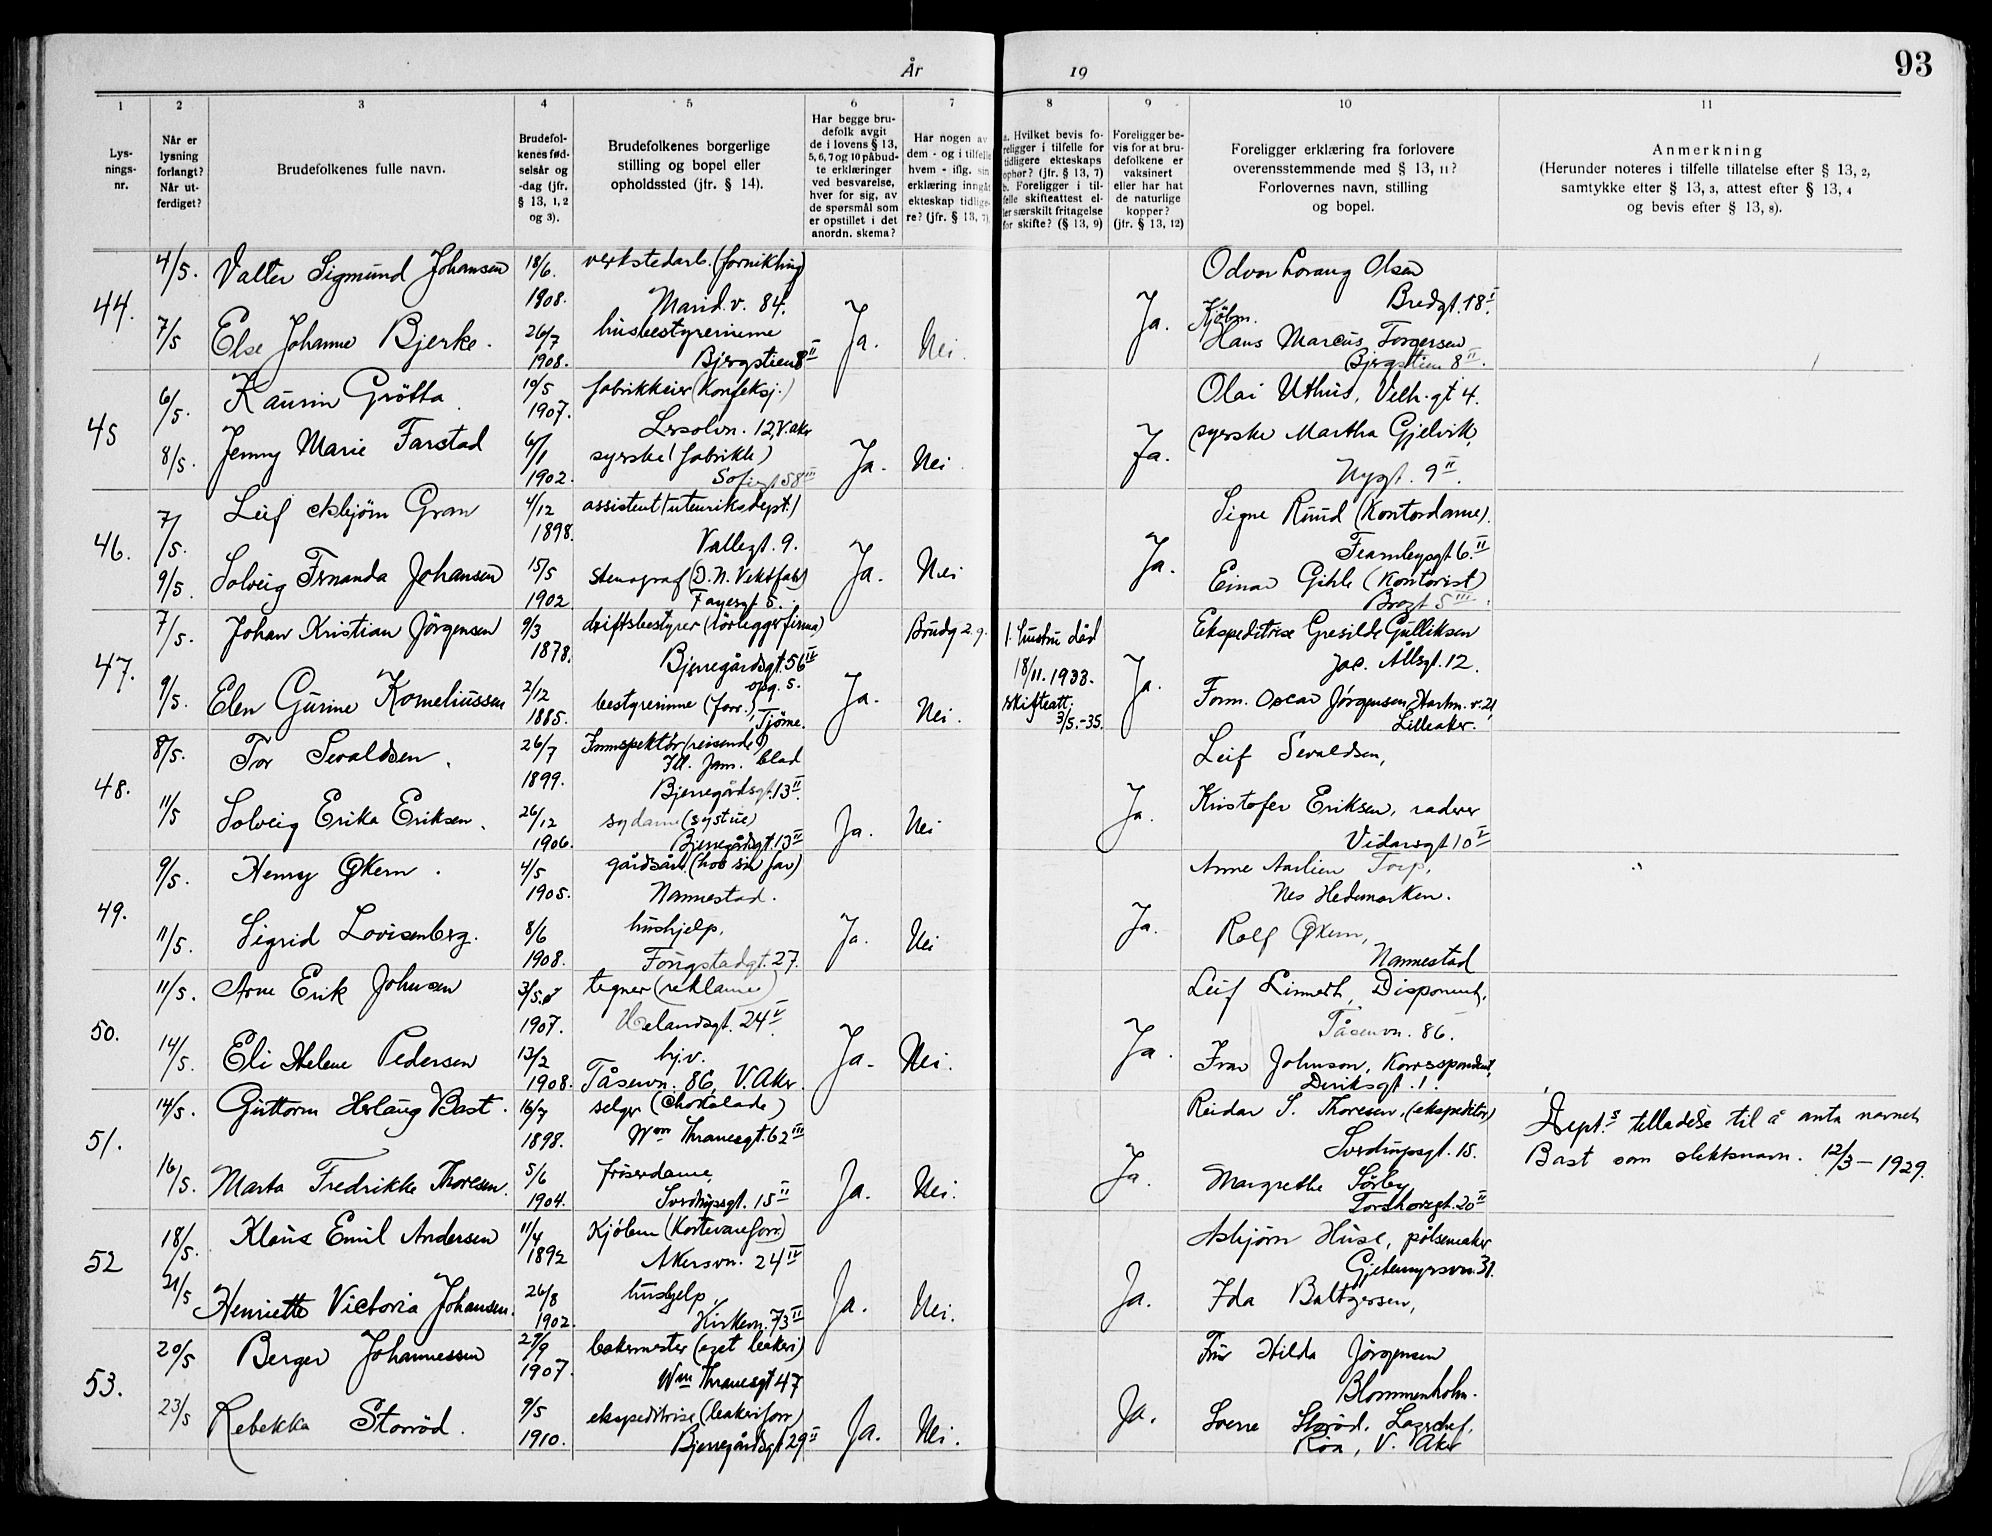 År 19
93
1 2 3 4 5 6 7 8 9 10 11
Lysningsnr.
Når er lysning forlangt? Når utferdiget?
Brudefolkenes fulle navn.
Brudefolkenes fødselsår og -dag (jfr. § 13, 1, 2 og 3).
Brudefolkenes borgerlige stilling og bopel eller opholdssted (jfr. § 14).
Har begge brudefolk avgit de i lovens § 13, 5, 6, 7 og 10 påbudte erklæringer ved besvarelse, hver for sig, av de spørsmål som er opstillet i det anordn. skema?
Har nogen av dem - og i tilfelle hvem - iflg. sin erklæring inngåt ekteskap tidligere? (jfr. § 13, 7).
a. Hvilket bevis foreligger i tilfelle for tidligere ekteskaps ophør? (jfr. § 13, 7)
b. Foreligger i tilfelle skifteattest eller særskilt fritagelse for skifte? (§ 13, 9)
Foreligger bevis for at brudefolkene er vaksinert eller har hat de naturlige kopper? (jfr. § 13, 12)
Foreligger erklæring fra forlovere overensstemmende med § 13, 11? Forlovernes navn, stilling og bopel.
Anmerkning
(Herunder noteres i tilfelle tillatelse efter § 13, 2, samtykke efter § 13, 3, attest efter § 13, 4 og bevis efter § 13, 8).
44. 4/5. Valter Sigmund Johansen 18/6. 1908. verkstedarb. (fornikling) Marid.v. 84.
7/5 Else Johanne Bjerke. 26/7 1908. husbestyrerinne Bergstien 8 II Ja. Nei.
Ja. Odvar Lorang Olsen Bredgt. 18 I.
Kjøbm. Hans Marcus Torgersen Bergstien 8 II.
45 6/5. Kaurin Grötta 19/5 1907. fabrikkeier (Konfeksj.) 12, V. Akr
8/5. Jenny Marie Farstad 6/1 1902. syerske (fabrikk) Sofiegt 58 III Ja. Nei.
Ja. Olai Uthus, Velh. gt 4.
syerske Martha Gjelvik, Nygt. 9 II.
46. 7/5. Leif Asbjörn Gran 4/12 1898. assistent (utenriksdept.) Vallegt. 9.
9/5. Solveig Fernanda Johansen 15/5 1902 stenograf (D. N. Vektfabr) Fayesgt 5. Ja. Nei
Ja. Signe Ruud (Kontordame). Fearnleysgt. 6. II
Einar Gihle (Kontorist) Brogt 5 III.
47. 7/5. Johan Kristian Jörgensen 9/3 1878. driftsbestyrer (rörleggerfirma) Bjerregårdsgt. 56 IV opg. 5.
9/5. Elen Gurine Korneliussen 2/12 1885. bestyrerinne (forr.), Tjöme. Ja. Brudg 2. g. Nei.
1. hustru död 18/11. 1933. skifteatt. 3/5.-35.
Ja. Ekspeditrise Gresilde Gulliksen Jac. Allsgt. 12.
Form. Oscar Jörgensen, Harbn. v. 21, Lilleaker.
48. 8/5. Tor Sevaldsen. 26/7 1899. Innspektör (reisende) Ill. fam. blad Bjerregårdsgt. 13 II.
11/5 Solveig Erika Eriksen. 26/12 1906. sydame (systue) Bjerregårdsgt. 13 II Ja. Nei
Ja. Leif Sevaldsen,
Kristofer Eriksen, raderer Vidarsgt 10 V
49. 9/5. Henry Økern. 4/5 1905. gårdsarb. (hos sin far) Nannestad.
11/5. Sigrid Lovisenberg. 8/6 1908. hushjelp, Fougstadgt. 27. Ja. Nei
Ja. Anne Aarlien Torp, Nes Hedemarken.
Rolf Økern, Nannestad
50. 11/5. Arne Erik Johnsen 3/5. 1907. tegner (reklame) Uelandsgt. 24 V
14/5. Eli Helene Pedersen 13/2 1908. hj.v. Tåsenvn. 86, V. Aker. Ja. Nei.
Ja. Leif Linneth, Disponent, Tåsenvn. 86.
Ivar Johnson, Korrespondent, Diriksgt. 1.
51. 14/5. Guttorm Herlaug Bast. 16/7 1898. selger (Chokolade) Wm Thranesgt. 62 III
16/5. Marta Fredrikke Thoresen. 5/6 1904. friserdame, Sverdrupsgt. 15 II Ja. Nei.
Ja. Reidar S. Thoresen, (ekspeditör) Sverdrupsgt. 15.
Margrethe Sörby Torshovgt. 20 II
Dept.s tilladelse til å anta navnet Bast som slektsnavn. 12/3 - 1929.
52 18/5. Klaus Emil Andersen 11/4 1892 Kjöbm (Kortevareforr.) Akersvn. 24 IV
21/5 Henriette Victoria Johansen. 26/8 1902. hushjelp, Kirkevn. 73 II Ja. Nei.
Ja. Asbjörn Huse, pölsemaker Gjetemyrsvn. 31.
Ida Baltzersen,
53. 20/5 Berger Johannessen 29/9 1907. bakermester (eget bakeri) Wm Thranesgt 47
23/5 Rebekka Storröd. 9/5 1910. ekspeditrise (bakeriforr) Bjerregårdsgt 29 II Ja. Nei.
Ja. Fru Hilda Jörgensen Blommenholm.
Sverre Storröd, Lagerchef, Röa, V. Aker